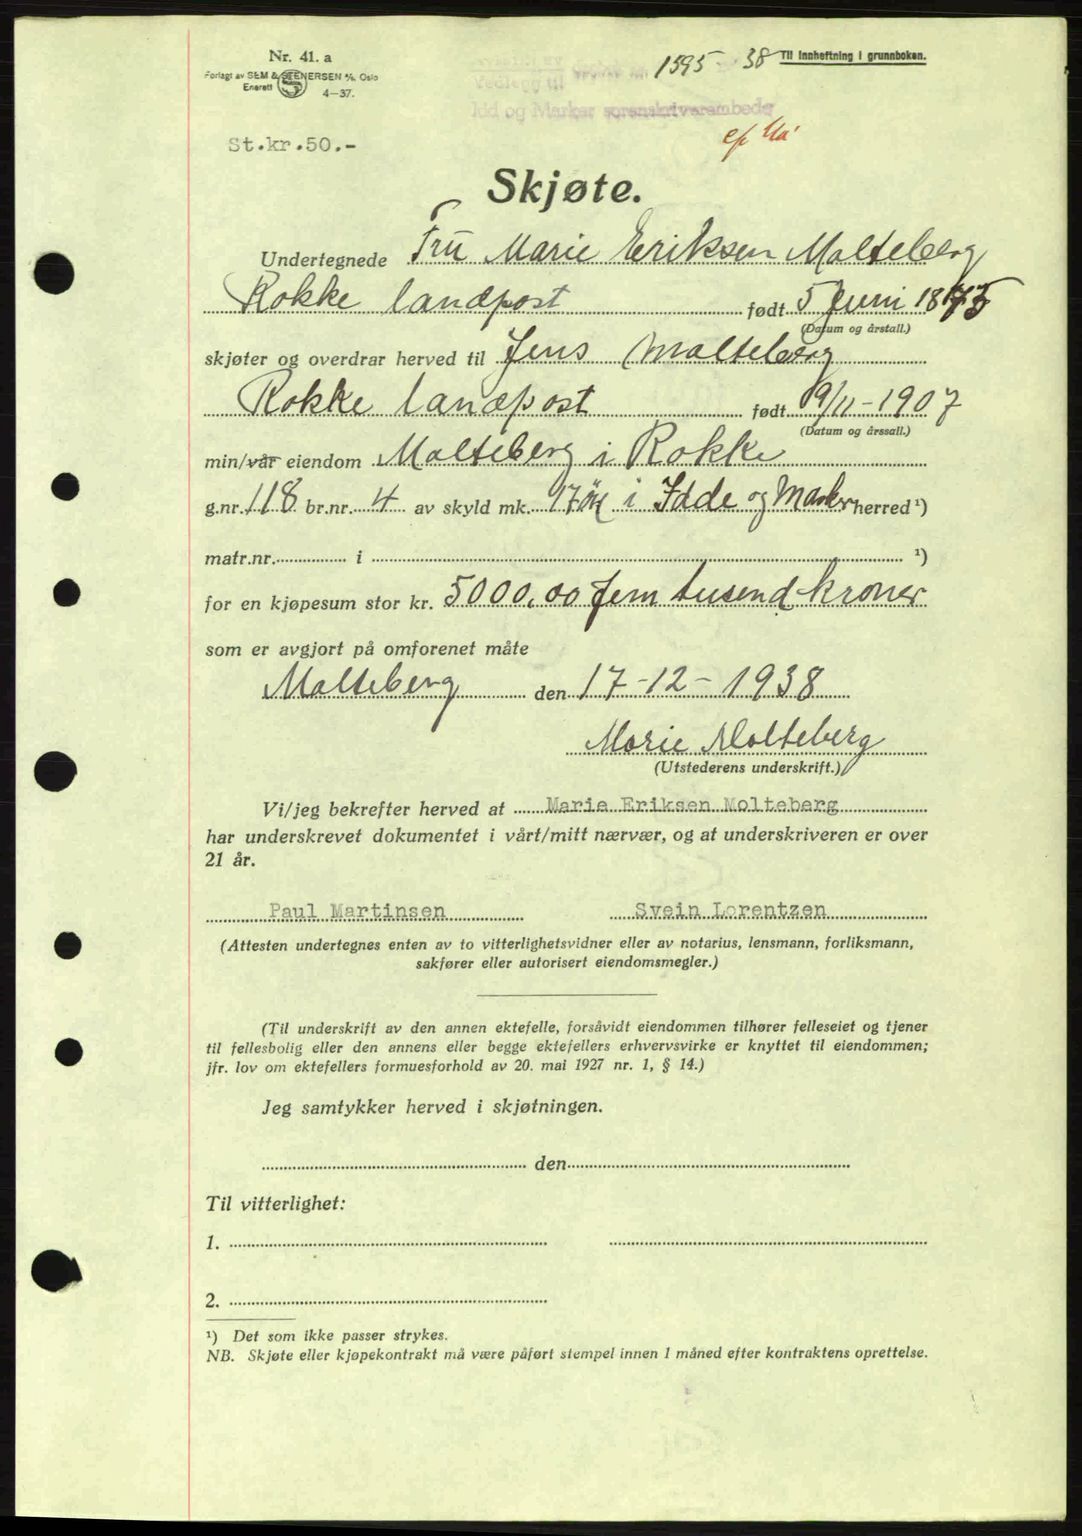 Nr. 41. a
Forlagt av SEM & STENERSEN A/S, Oslo
Enerett
4-37.
1595 - 38
Til innheftning i grunnboken.
Vedlegg til
Idd og Marker sorenskriverembede
St.kr.50.-
Skjøte.
Undertegnede Fru Marie Eriksen Molteberg
Rokke landpost født 5 Juni 1875
(Datum og årstall.)
skjøter og overdrar herved til Jens Molteberg
Rokke landpost født 19/11-1907
(Datum og årssall.)
min/vår eiendom Molteberg i Rokke
g.nr. 118 br.nr. 4 av skyld mk. 17 øre i Idde og Marker herred ¹)
matr.nr. i ¹)
for en kjøpesum stor kr. 5000,00 Fem tusend kroner
som er avgjort på omforenet måte
Molteberg den 17-12-1938
Marie Molteberg
(Utstederens underskrift.)
Vi/jeg bekrefter herved at Marie Eriksen Molteberg
har underskrevet dokumentet i vårt/mitt nærvær, og at underskriveren er over
21 år.
Paul Martinsen Svein Lorentzen
(Attesten undertegnes enten av to vitterlighetsvidner eller av notarius, lensmann, forliksmann,
sakfører eller autorisert eiendomsmegler.)
(Til underskrift av den annen ektefelle, forsåvidt eiendommen tilhører felleseiet og tjener
til fellesbolig eller den annens eller begge ektefellers erhvervsvirke er knyttet til eiendommen;
jfr. lov om ektefellers formuesforhold av 20. mai 1927 nr. 1, § 14.)
Jeg samtykker herved i skjøtningen.
den
Til vitterlighet:
1.
2.
¹) Det som ikke passer strykes.
NB. Skjøte eller kjøpekontrakt må være påført stempel innen 1 måned efter kontraktens oprettelse.